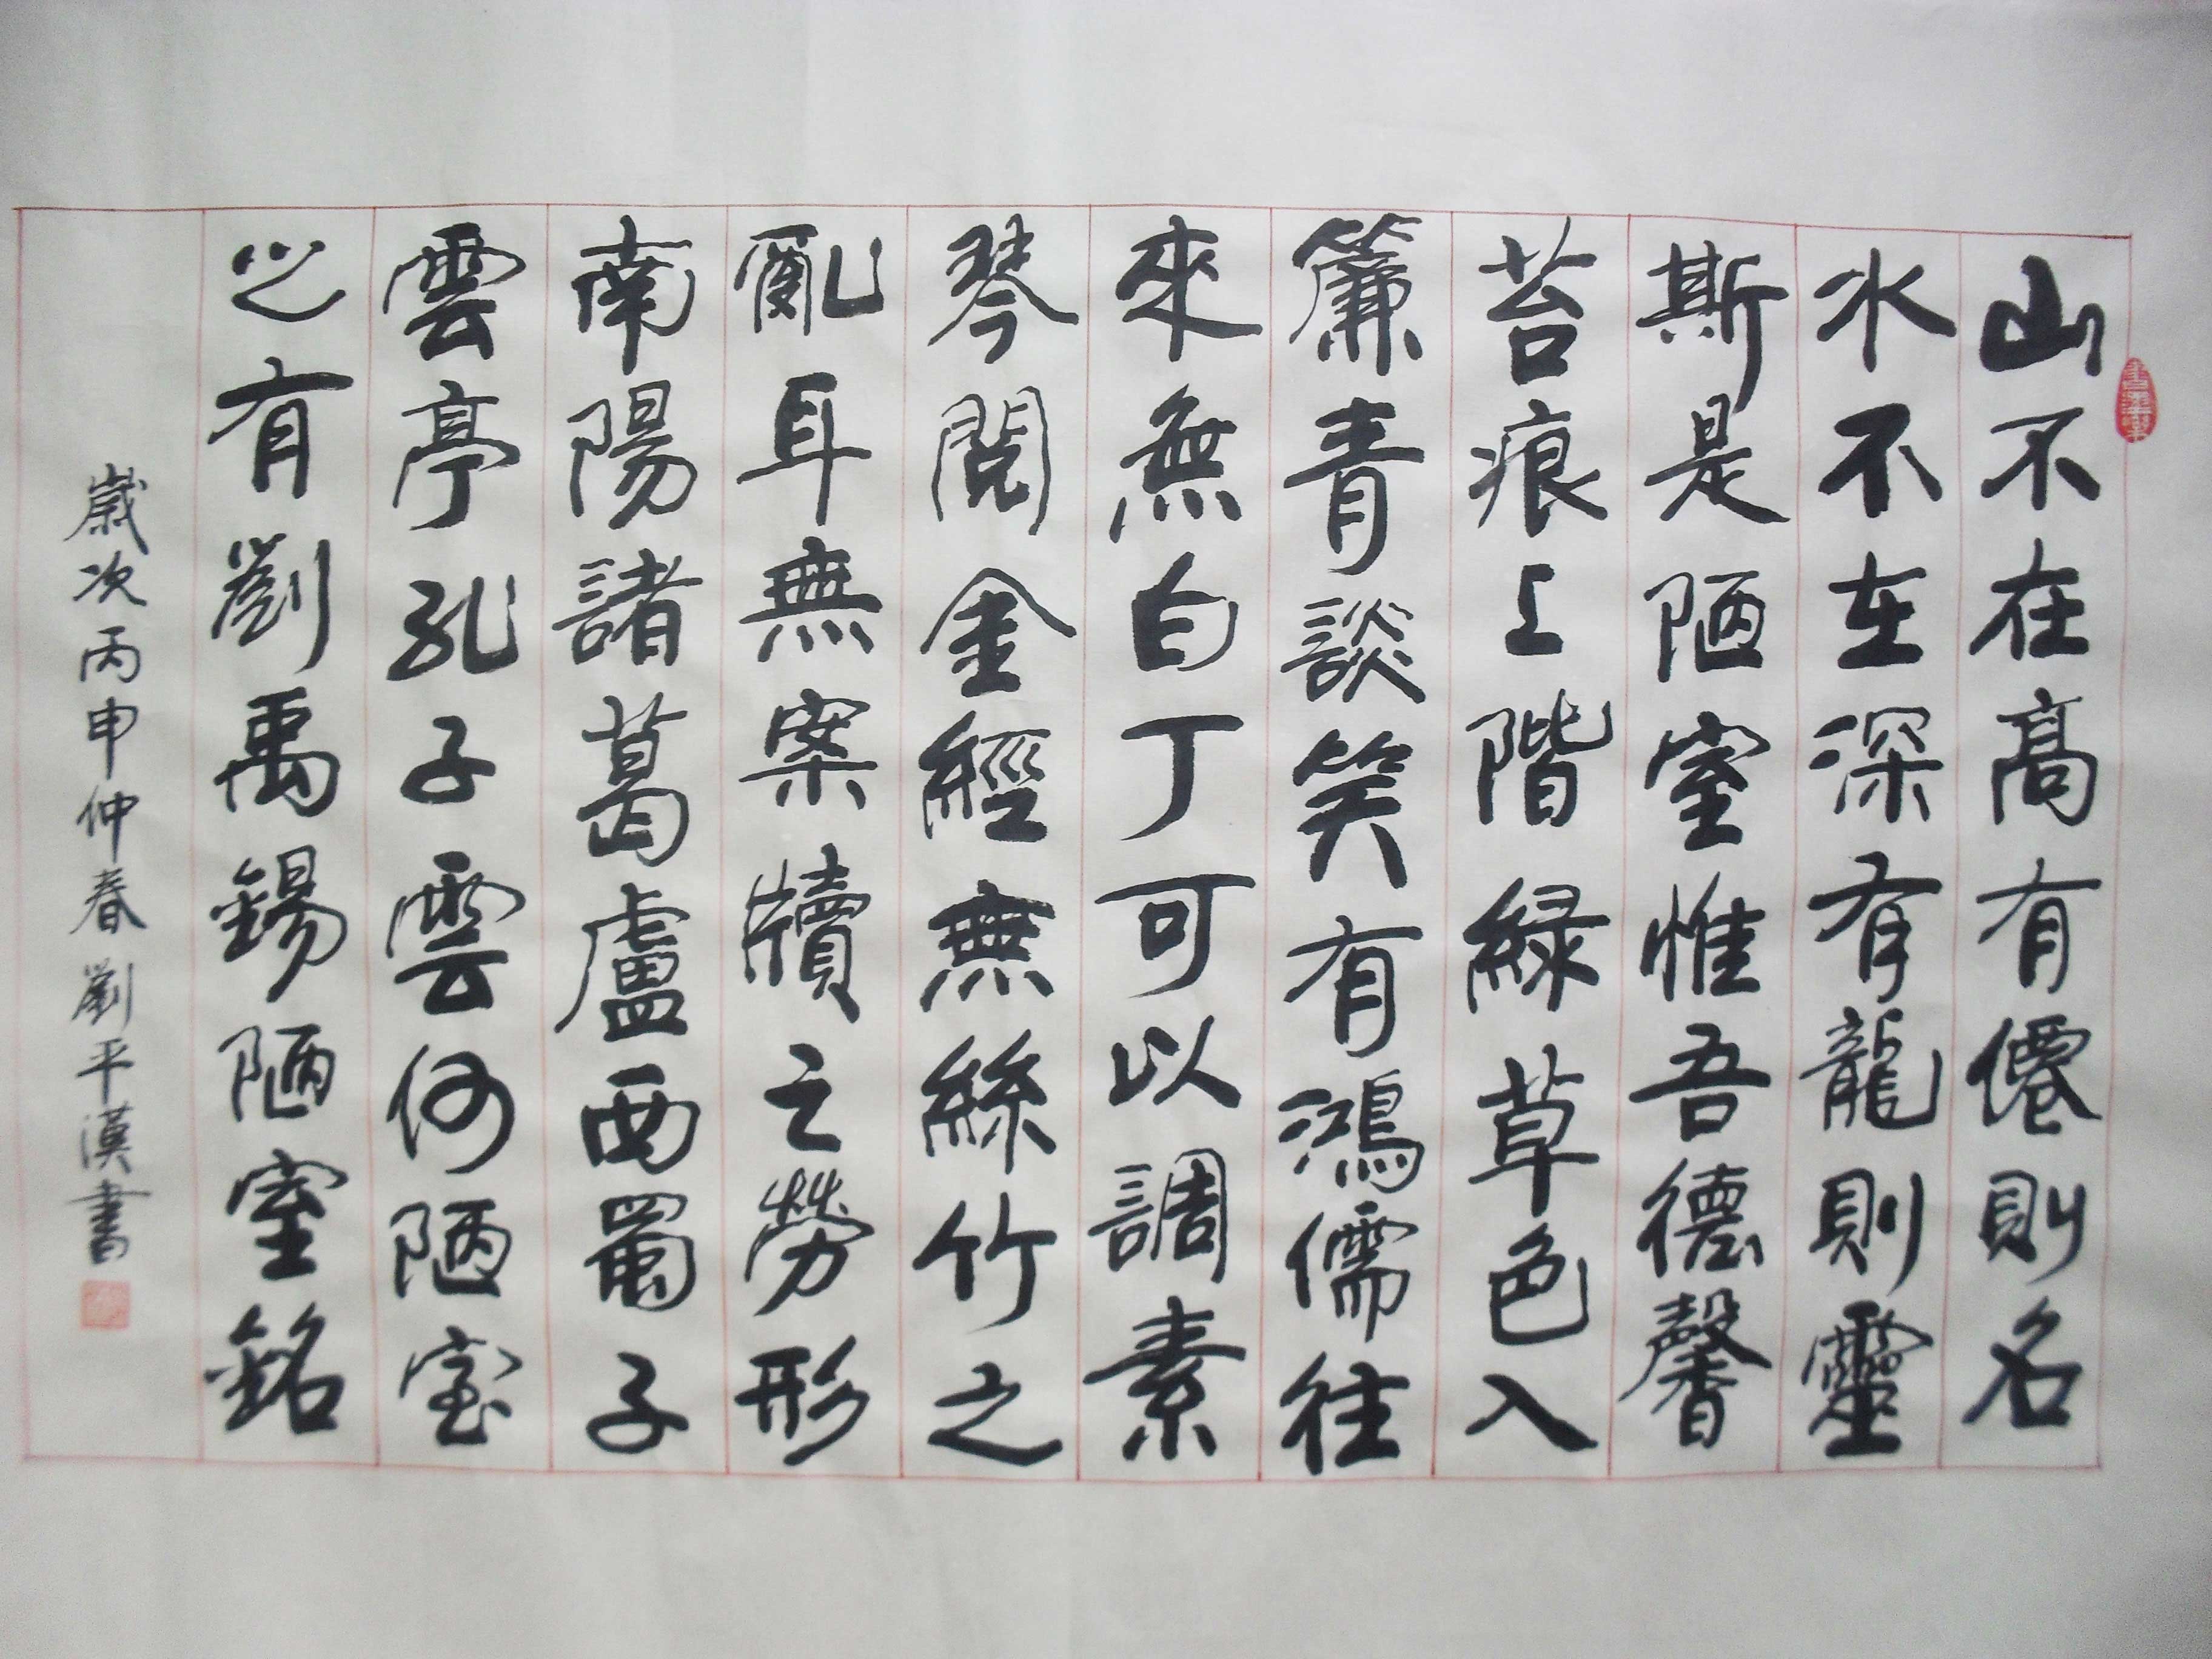 山不在高有僊則名
水不在深有龍則靈
斯是陋室惟吾德馨
苔痕上階緑草色入
簾青談笑有鴻儒往
來無白丁可以調素
琴閲金經無絲竹之
亂耳無案牘之勞形
南陽諸葛廬西蜀子
雲亭孔子雲何陋室
之有劉禹錫陋室銘
歲次丙申仲春劉平漢書